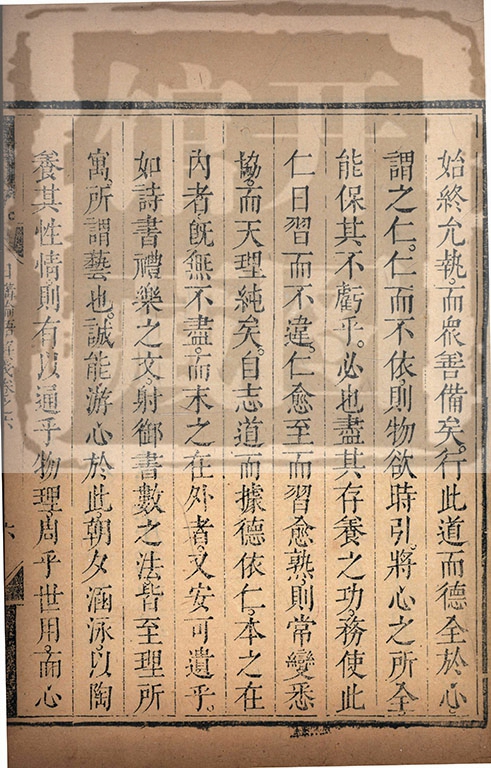 始終允執。而衆善備矣。行此道而德全於心。
謂之仁。仁而不依。則物欲時引。將心之所全
能保其不虧乎。必也盡其存養之功。務使此
仁日習而不違。仁愈至而習愈熟。則常變悉
協。而天理純矣。自志道而據德依仁。本之在
內者。旣無不盡。而末之在外者。又安可遺乎。
如詩書禮樂之文。射御書數之法。皆至理所
寓。所謂藝也。誠能游心於此。朝夕涵泳。以陶
養其性情。則有以通乎物理。周乎世用。而心
六